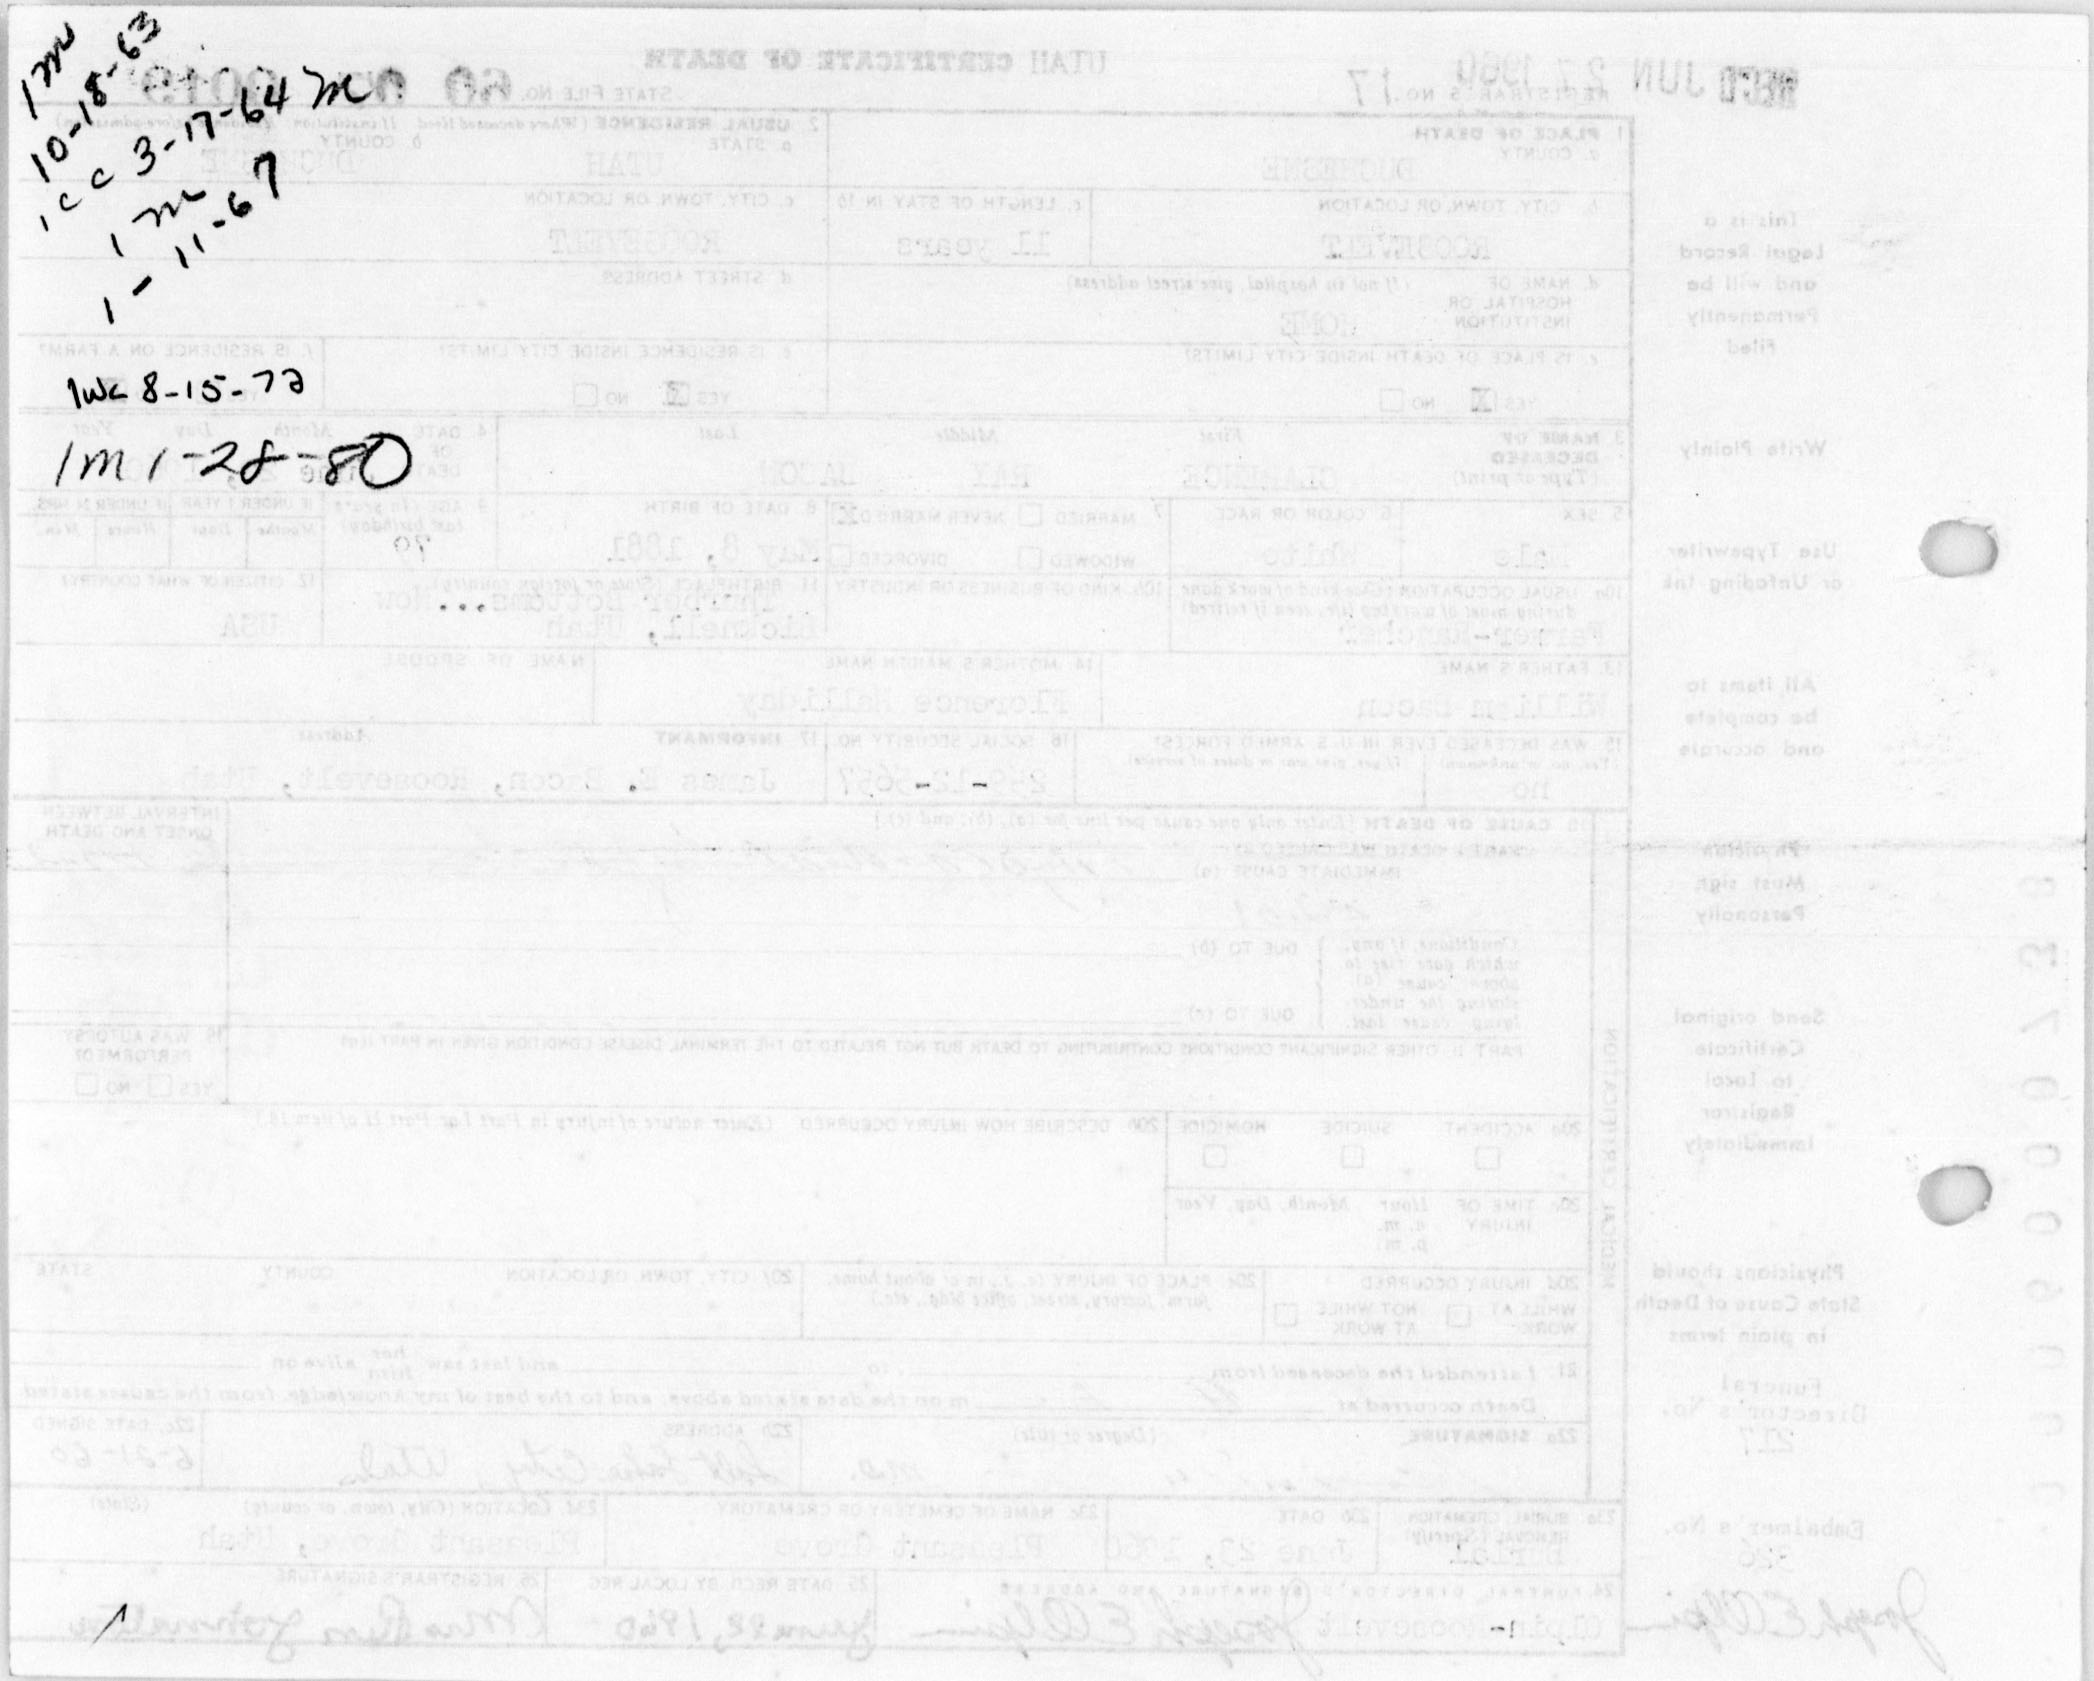 1 m
10-18-63
1 c c 3-17-64 m
1 m
1-11-67
1wc 8-15-72
1 m 1-28-80
REC'D JUN 27 1960
UTAH CERTIFICATE OF DEATH
REGISTRAR'S NO. 17
STATE FILE NO. 60
1 PLACE OF DEATH
a. COUNTY
DUCHESNE
2 USUAL RESIDENCE (Where deceased lived. If institution: Residence before admission)
a. STATE
UTAH
b. COUNTY
DUCHESNE
b. CITY, TOWN, OR LOCATION
ROOSEVELT
c. LENGTH OF STAY IN 1b
11 years
c. CITY, TOWN, OR LOCATION
ROOSEVELT
d. NAME OF HOSPITAL OR INSTITUTION
(If not in hospital, give street address)
HOME
d. STREET ADDRESS
e. IS PLACE OF DEATH INSIDE CITY LIMITS?
YES X NO
e. IS RESIDENCE INSIDE CITY LIMITS?
YES X NO
f. IS RESIDENCE ON A FARM?
3. NAME OF DECEASED
(Type or print)
First Middle Last
CLARENCE RAY
4. DATE OF DEATH
Month Day Year
June
5. SEX
Male
6. COLOR OR RACE
White
7. MARRIED NEVER MARRIED X
WIDOWED DIVORCED
8. DATE OF BIRTH
May 8, 1881
9. AGE (In years last birthday)
79
IF UNDER 1 YEAR
Months Days
IF UNDER 24 HRS.
Hours Min.
10a. USUAL OCCUPATION (Give kind of work done during most of working life, even if retired)
Farmer-Rancher
10b. KIND OF BUSINESS OR INDUSTRY
11. BIRTHPLACE (State or foreign country)
Thurber Bottoms...Now
Bicknell, Utah
12. CITIZEN OF WHAT COUNTRY?
USA
13. FATHER'S NAME
William Bacon
14. MOTHER'S MAIDEN NAME
Florence Halliday
NAME OF SPOUSE
15. WAS DECEASED EVER IN U.S. ARMED FORCES?
(Yes, no, or unknown) (If yes, give war or dates of service)
no
16. SOCIAL SECURITY NO.
17. INFORMANT Address
James E. Bacon, Roosevelt, Utah
18. CAUSE OF DEATH [Enter only one cause per line for (a), (b), and (c).]
PART I. DEATH WAS CAUSED BY:
IMMEDIATE CAUSE (a)
Conditions, if any, which gave rise to above cause (a), stating the underlying cause last.
DUE TO (b)
DUE TO (c)
INTERVAL BETWEEN ONSET AND DEATH
PART II. OTHER SIGNIFICANT CONDITIONS CONTRIBUTING TO DEATH BUT NOT RELATED TO THE TERMINAL DISEASE CONDITION GIVEN IN PART I(a)
19. WAS AUTOPSY PERFORMED?
YES NO
MEDICAL CERTIFICATION
20a. ACCIDENT SUICIDE HOMICIDE
20b. DESCRIBE HOW INJURY OCCURRED (Enter nature of injury in Part I or Part II of item 18.)
20c. TIME OF INJURY
Hour Month, Day, Year
a. m.
p. m.
20d. INJURY OCCURRED
WHILE AT WORK NOT WHILE AT WORK
20e. PLACE OF INJURY (e. g., in or about home, farm, factory, street, office bldg., etc.)
20f. CITY, TOWN, OR LOCATION COUNTY STATE
21. I attended the deceased from , to and last saw her him alive on
Death occurred at m on the date stated above, and to the best of my knowledge, from the causes stated
22a. SIGNATURE (Degree or title)
M.D.
22b. ADDRESS
Salt Lake City, Utah
22c. DATE SIGNED
6-21-60
23a. BURIAL, CREMATION, REMOVAL (Specify)
Burial
23b. DATE
June 23, 1960
23c. NAME OF CEMETERY OR CREMATORY
Pleasant Grove
23d. LOCATION (City, town, or county) (State)
Pleasant Grove, Utah
24. FUNERAL DIRECTOR'S SIGNATURE AND ADDRESS
Olpin-Roosevelt Joseph E Olpin
25. DATE RECD BY LOCAL REG.
June 22, 1960
26. REGISTRAR'S SIGNATURE
This is a
Legal Record
and will be
Permanently
Filed
Write Plainly
Use Typewriter
or Unfading Ink
All items to
be complete
and accurate
Physician
Must sign
Personally
Send original
Certificate
to Local
Registrar
Immediately
Physicians should
State Cause of Death
in plain terms
Funeral
Director's No.
217
Embalmer's No.
326
Joseph E Olpin